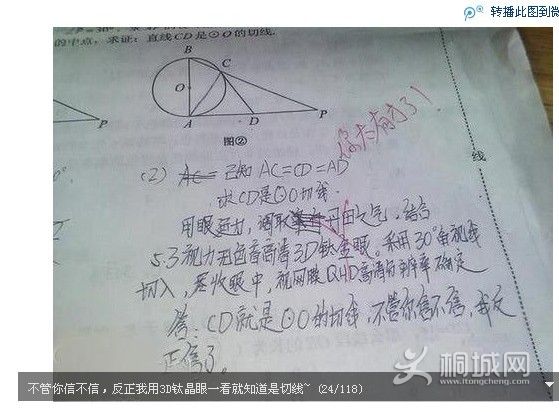 转播此图到微
的中点，求证：直线CD是⊙O的切线.
B
C
O
A
D
P
P
图②
你太有才了！
线
(2) 已知 AC=CD=AD
求CD是⊙O切线.
用眼运力，调取丹田之气，结合
5.3视力无色盲高清3D钛金眼，采用30°角视线
切入，尽收眼中，视网膜QHD高清分辨率确定
答：CD就是⊙O的切线，不管你信不信，我反
正信了。
桐城网
www.itongcheng.com
不管你信不信，反正我用3D钛晶眼一看就知道是切线~ (24/118)